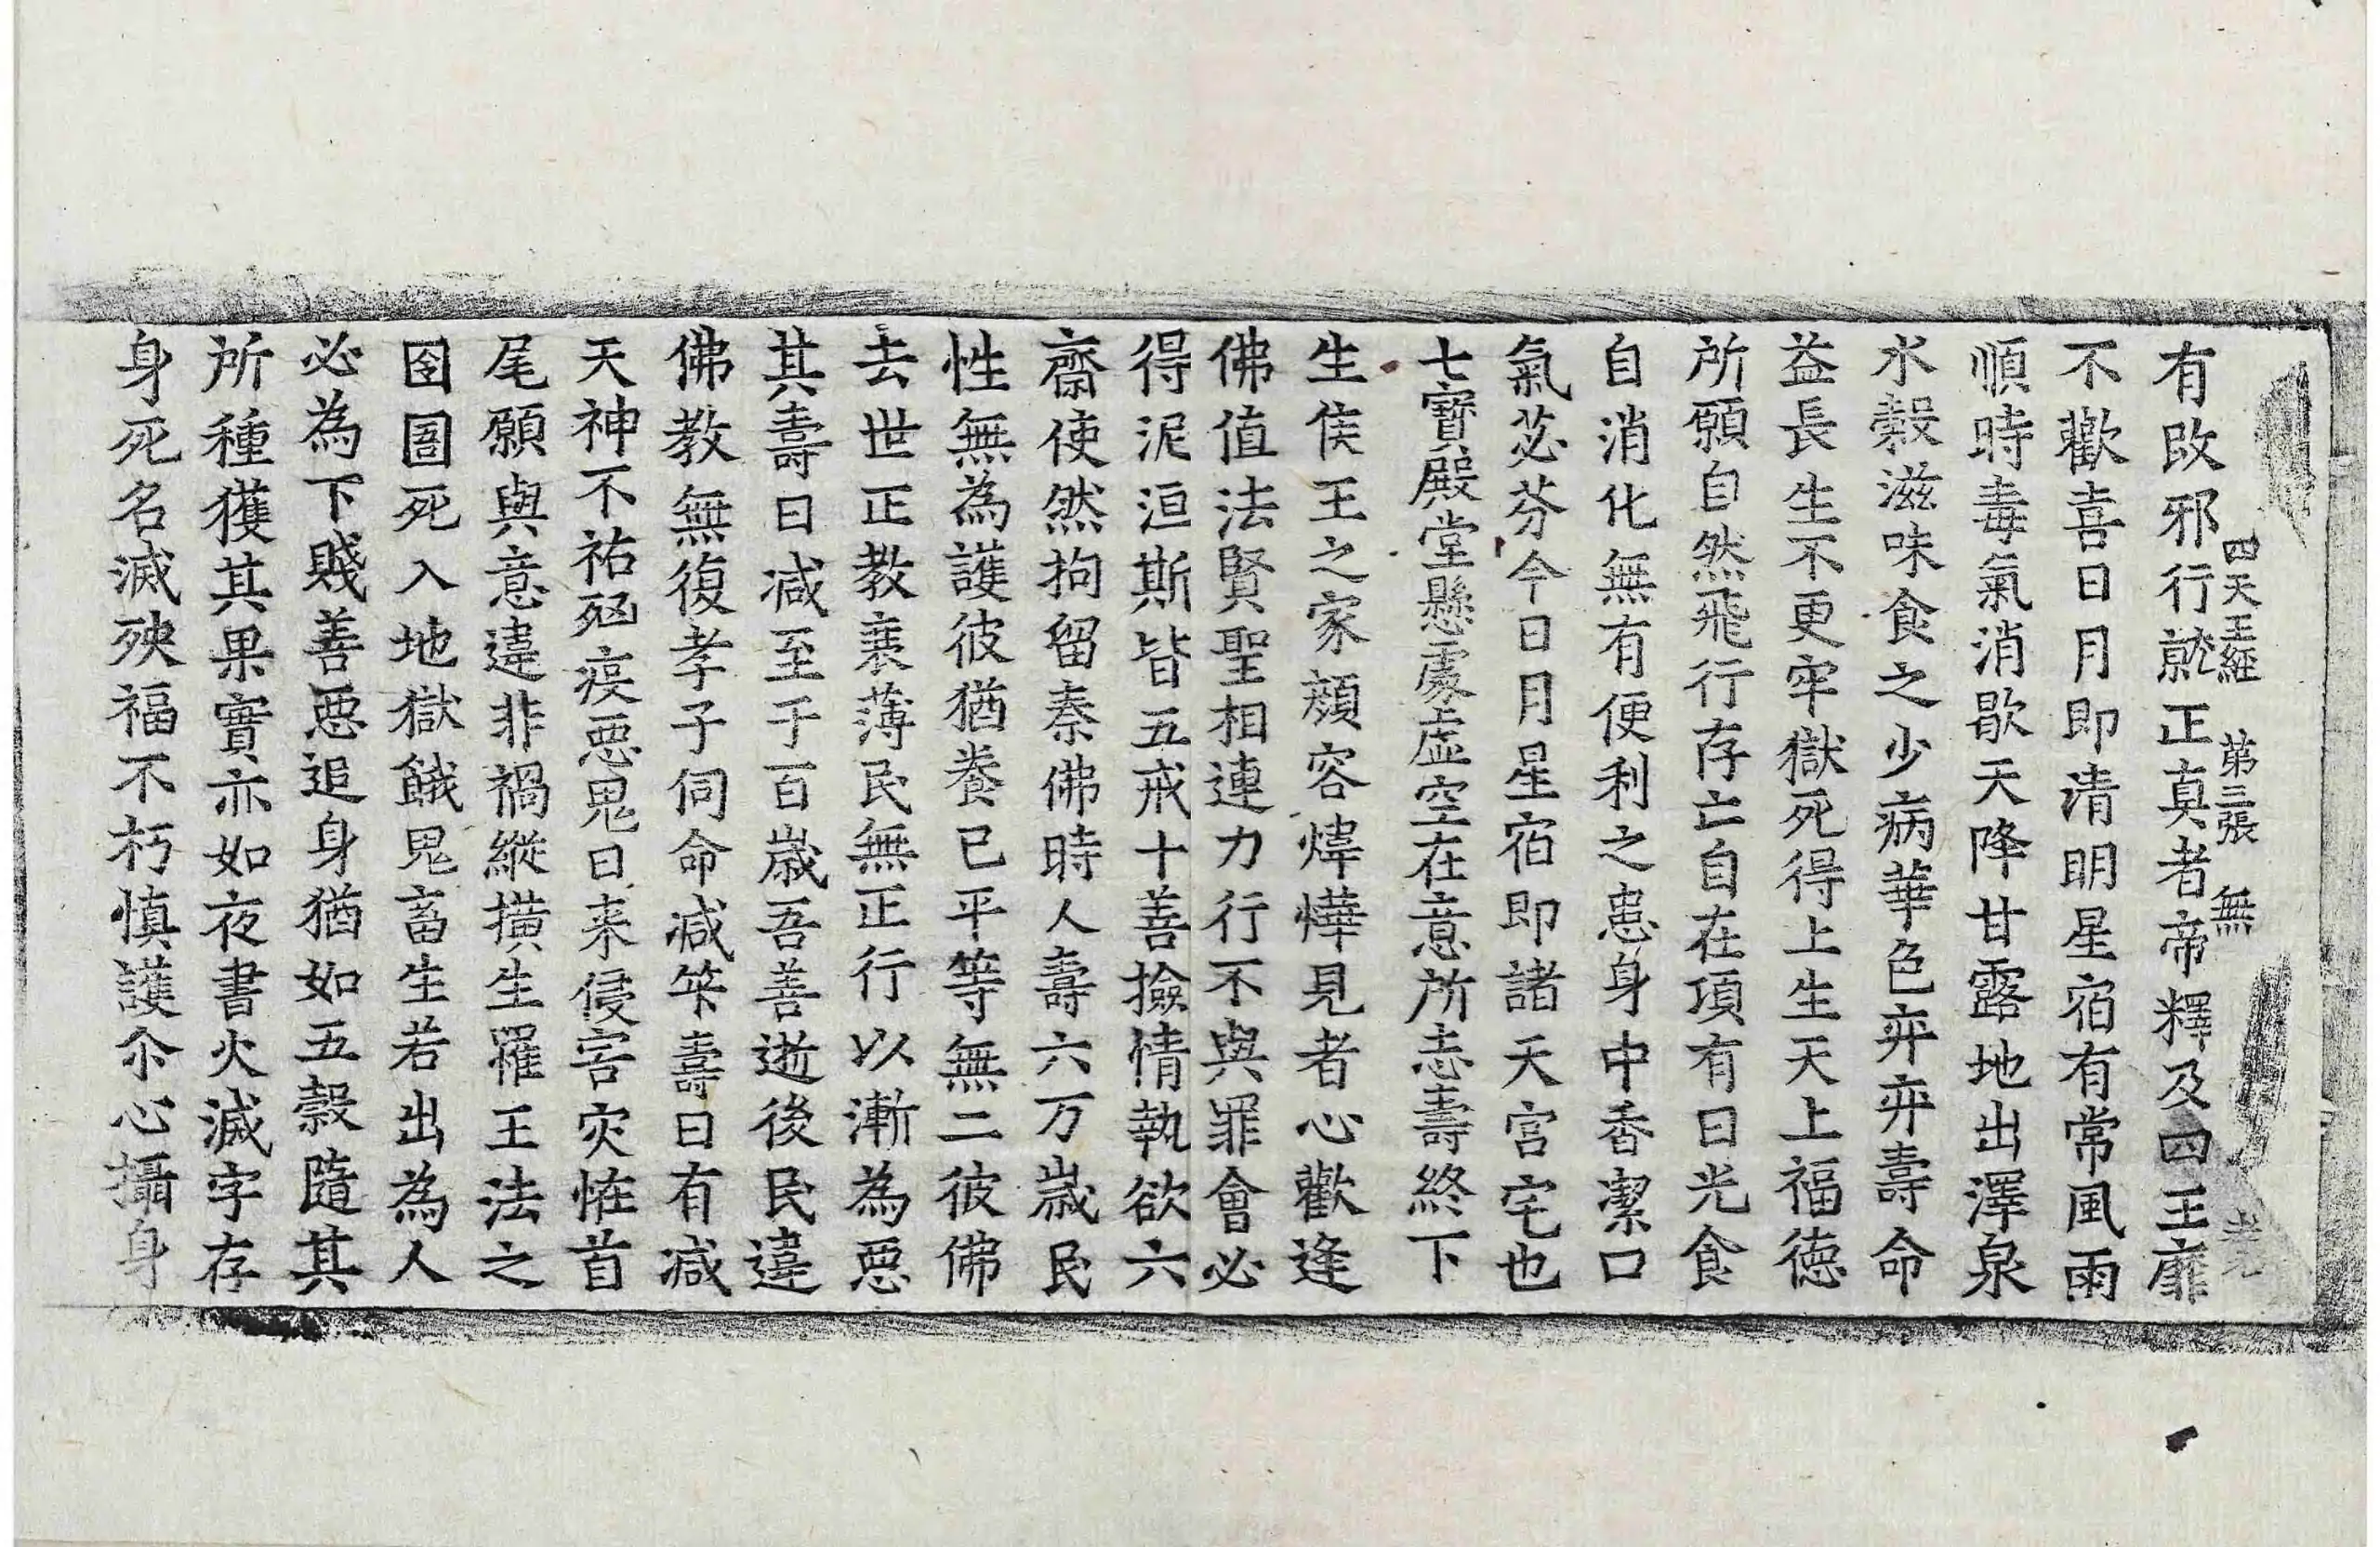 四天王經　第三張　無
有改邪行就正真者帝釋及四王靡
不歡喜日月即清明星宿有常風雨
順時毒氣消歇天降甘露地出澤泉
水穀滋味食之少病華色弈弈壽命
益長生不更牢獄死得上生天上福德
所願自然飛行存亡自在項有日光食
自消化無有便利之患身中香潔口
氣苾芬今日月星宿即諸天宮宅也
七寶殿堂懸處虛空在意所志壽終下
生侯王之家顏容煒燁見者心歡逢
佛值法賢聖相連力行不與罪會必
得泥洹斯皆五戒十善撿情執欲六
齋使然拘留秦佛時人壽六万歲民
性無為護彼猶養己平等無二彼佛
去世正教衰薄民無正行以漸為惡
其壽日減至于百歲吾善逝後民違
佛教無復孝子伺命減筭壽日有減
天神不祐㐫疾惡鬼日来侵害灾恠首
尾願與意違非禍縱撗生罹王法之
囹圄死入地獄餓鬼畜生若出為人
必為下賤善惡追身猶如五穀隨其
所種獲其果實亦如夜書火滅字存
身死名滅殃福不朽慎護尒心攝身